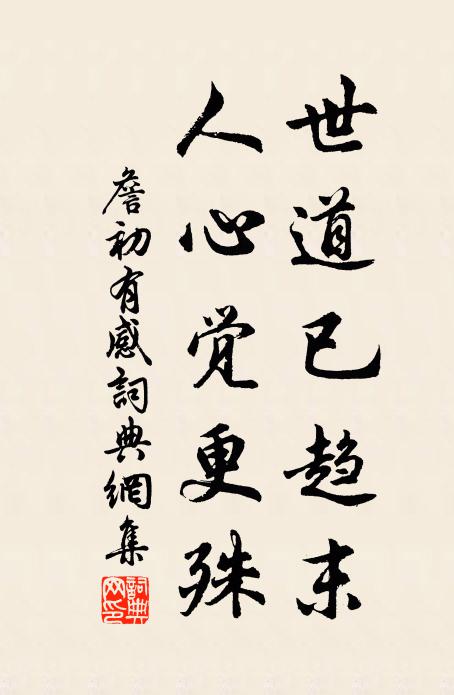 世道已趋末
人心觉更殊
詹初有感詞典網集
詞典網印